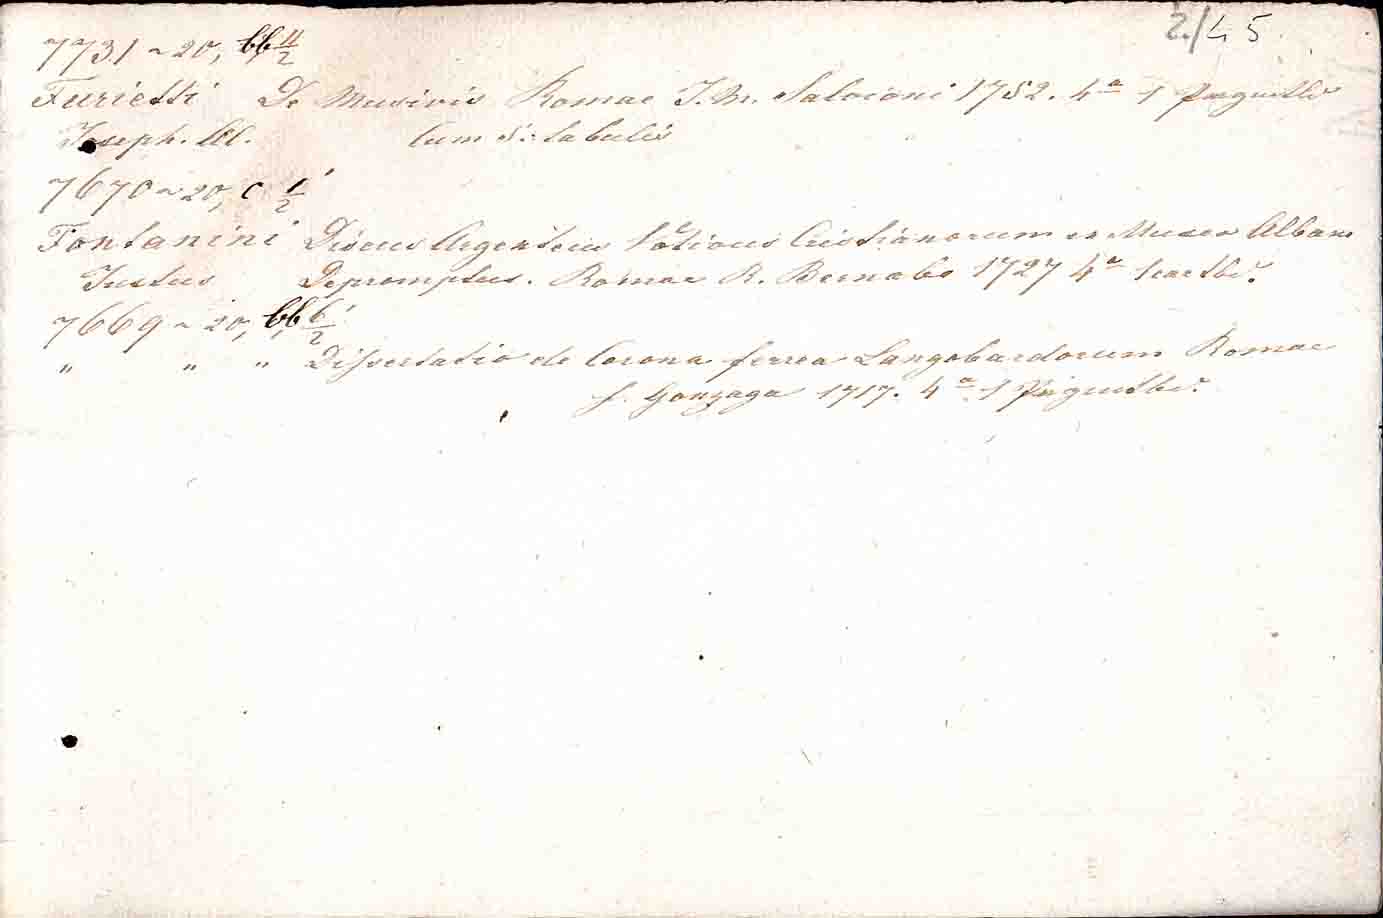 2./45.
7731 ~ 20, bb 11/2
Furietti De Musivis Romae J. M. Salvioni 1752. 4a 1 Prgmtb
Joseph. Al. Cum 5: tabulis
7670 ~ 20, c 1/2
Fontanini Discus Argenteus Votivus Cristianorum ex Museo Albano
Justus Depromptus. Romae R. Bernabo 1727 4a 1
7669 ~ 20, bb 6/2
" " " Dissertatio de Corona ferrea Langobardorum Romae
f. Gonzaga 1717. 4a 1